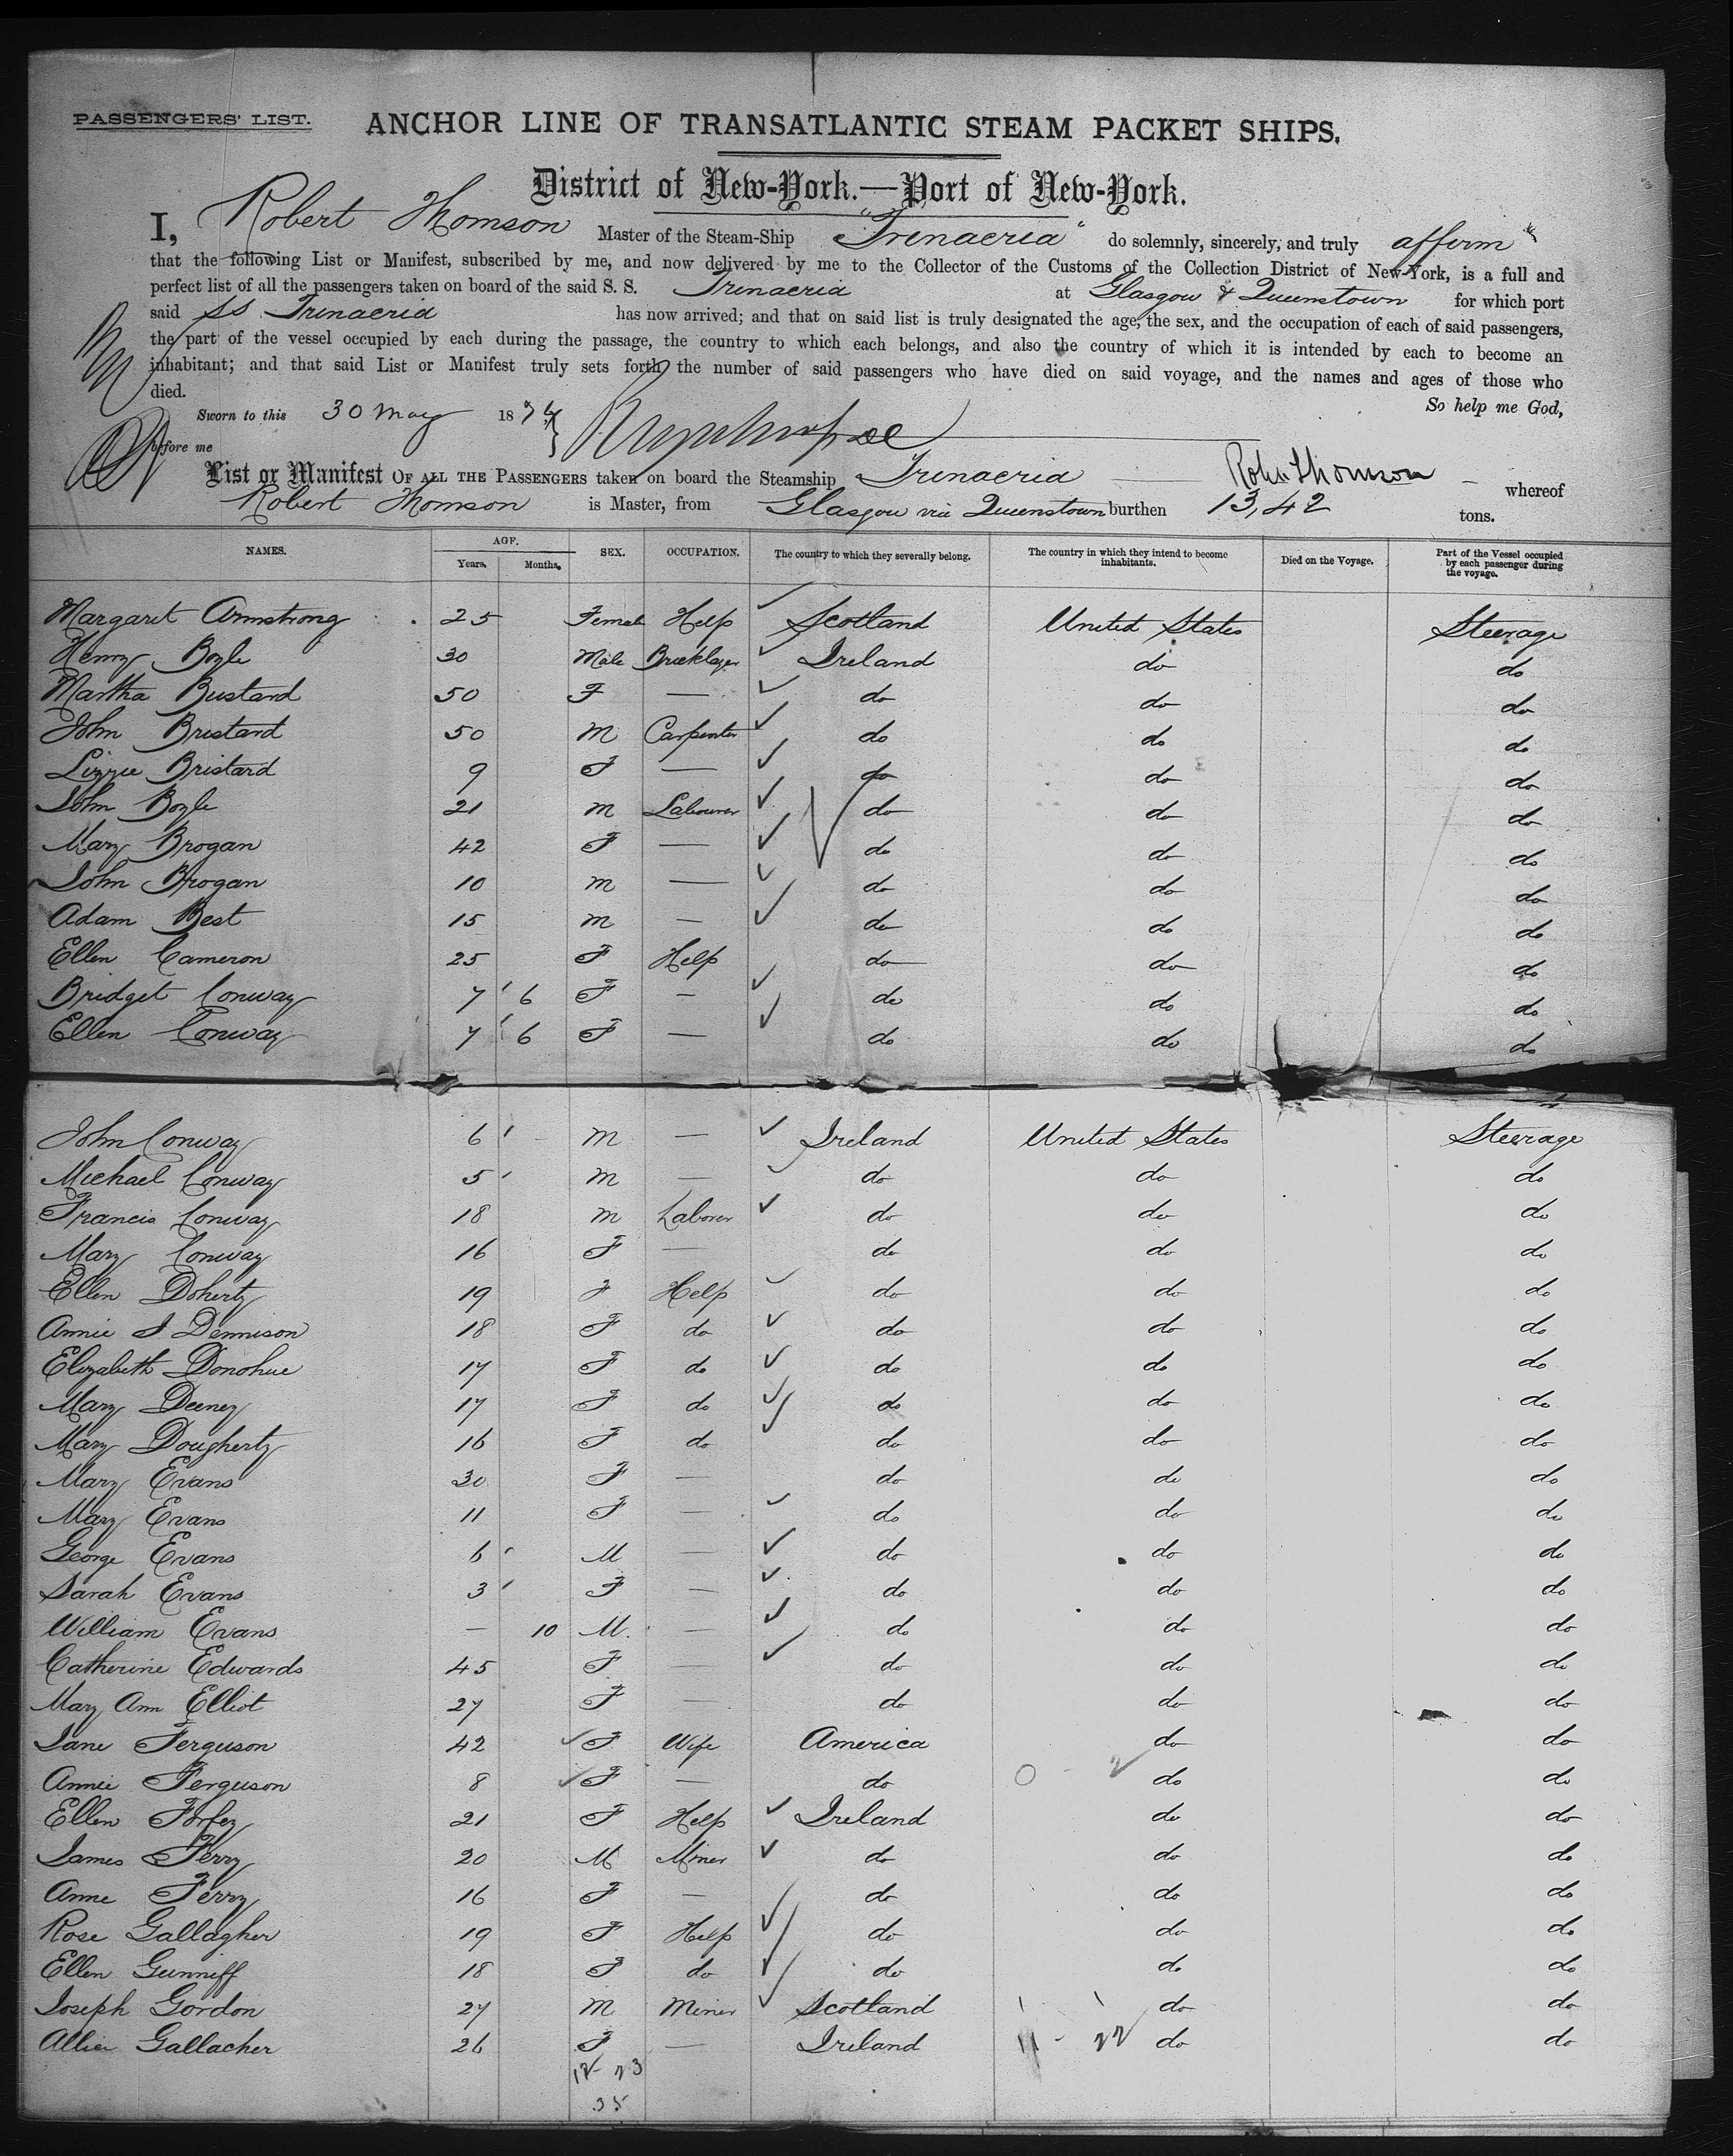 PASSENGERS' LIST.
ANCHOR LINE OF TRANSATLANTIC STEAM PACKET SHIPS.
District of New-York.—Port of New-York.
I, Robert Thomson Master of the Steam-Ship "Trinacria" do solemnly, sincerely, and truly affirm
that the following List or Manifest, subscribed by me, and now delivered by me to the Collector of the Customs of the Collection District of New-York, is a full and
perfect list of all the passengers taken on board of the said S. S. Trinacria at Glasgow & Queenstown for which port
said SS Trinacria has now arrived; and that on said list is truly designated the age, the sex, and the occupation of each of said passengers,
the part of the vessel occupied by each during the passage, the country to which each belongs, and also the country of which it is intended by each to become an
inhabitant; and that said List or Manifest truly sets forth the number of said passengers who have died on said voyage, and the names and ages of those who
died.
So help me God,
Sworn to this 30 May 1874
before me
Robt Thomson
List or Manifest OF ALL THE PASSENGERS taken on board the Steamship Trinacria whereof
Robert Thomson is Master, from Glasgow via Queenstown burthen 13,42 tons.
NAMES. AGE. Years. Months. SEX. OCCUPATION. The country to which they severally belong. The country in which they intend to become inhabitants. Died on the Voyage. Part of the Vessel occupied by each passenger during the voyage.
Margaret Armstrong 25 Female Help Scotland United States Steerage
Henry Boyle 30 Male Bricklayer Ireland do do
Martha Bustard 50 F — do do do
John Bustard 50 M Carpenter do do do
Lizzie Bustard 9 F — do do do
John Boyle 21 M Labourer do do do
Mary Brogan 42 F — do do do
John Brogan 10 M — do do do
Adam Best 15 M — do do do
Ellen Cameron 25 F Help do do do
Bridget Conway 7 6 F — do do do
Ellen Conway 7 6 F — do do do
John Conway 6 M — Ireland United States Steerage
Michael Conway 5 M — do do do
Francis Conway 18 M Laborer do do do
Mary Conway 16 F — do do do
Ellen Doherty 19 F Help do do do
Annie J Dennison 18 F do do do do
Elizabeth Donohue 17 F do do do do
Mary Deeney 17 F do do do do
Mary Dougherty 16 F do do do do
Mary Evans 30 F — do do do
Mary Evans 11 F — do do do
George Evans 6 M — do do do
Sarah Evans 3 F — do do do
William Evans — 10 M. — do do do
Catherine Edwards 45 F — do do do
Mary Ann Elliot 27 F — do do do
Jane Ferguson 42 F Wife America do do
Annie Ferguson 8 F — do 0 - 2 do do
Ellen Forfey 21 F Help Ireland do do
James Ferry 20 M Miner do do do
Anne Ferry 16 F — do do do
Rose Gallagher 19 F Help do do do
Ellen Gunniff 18 F do do do do
Joseph Gordon 27 M Miner Scotland 1 1 do do
Allie Gallacher 26 F — Ireland 11 - 22 do do
12 - 23
35